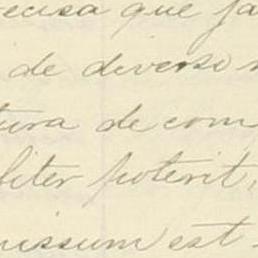 recisa que fa
de diverso
tura de com
liter poterit,
missum est